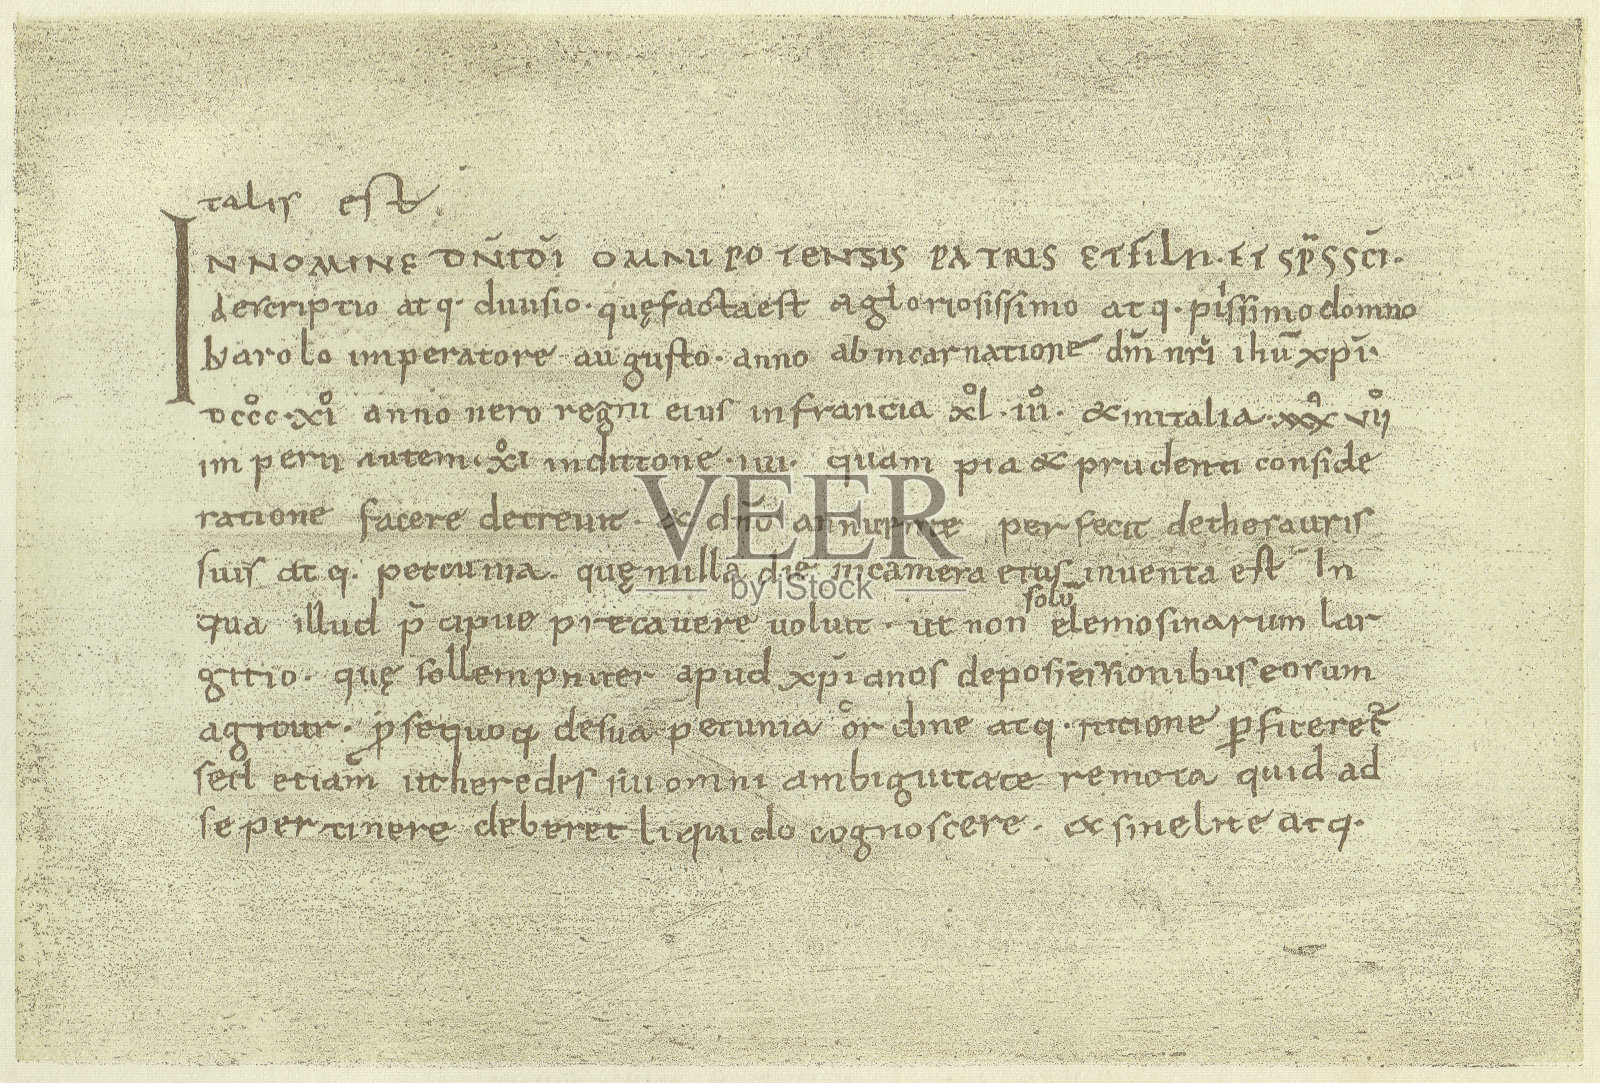 talis est
IN NOMINE DN̄I DĪ OMNIPOTENTIS PATRIS ET FILII · ET SPS̄ SCĪ ·
descriptio atq· diuisio · quę facta est a gloriosissimo atq· piissimo domno
karolo imperatore augusto · anno ab incarnatione dn̄i nr̄i ihū xpī
DCCCC · XI anno uero regni eius in francia XL · IIII · & in italia · XXXVII
imperii autem · XI indictione · IIII · quam pia & prudenti conside
ratione facere decreuit · & dn̄o annuente perfecit de thesauris
suis atq· pecunia · quę in illa die in camera eius inuenta est In
qua illud p̄cipue precauere uoluit · ut non solū elemosinarum lar
gitio · quę sollempniter apud xpīanos de possessionibus eorum
agitur · p se quoq de sua pecunia ordine atq· ratione pficeret
sed etiam ut heredes sui omni ambiguitate remota quid ad
se pertinere deberet liquido cognoscere · & sine lite atq·
VEER
by iStock